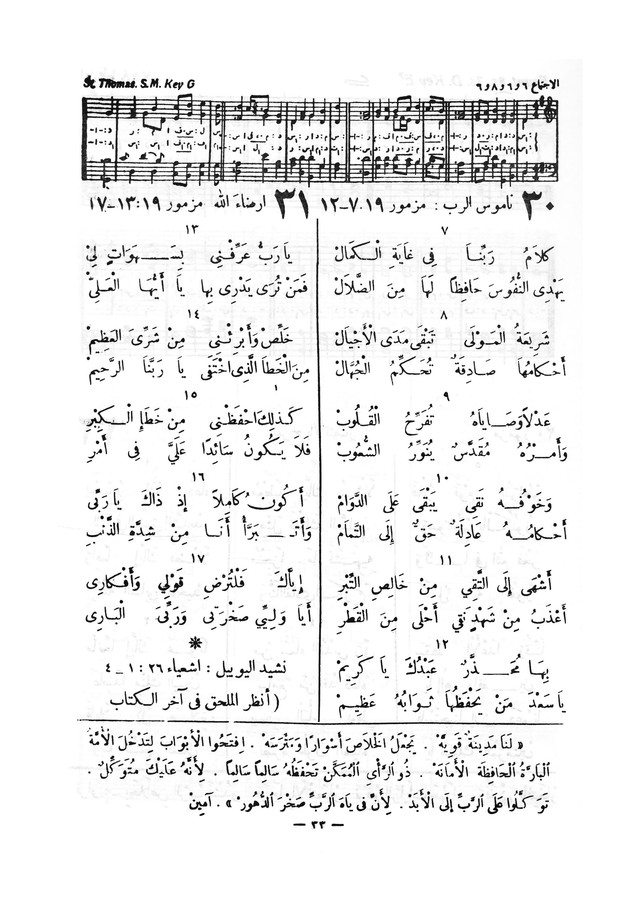 St. Thomas. S.M. Key G
الاجتماع ٦ و ٦ و ٨ و ٦
٣٠ ناموس الرب : مزمور ١٩ . ٧-١٢
٧
كلامُ رَبِّنا فِى غايَةِ الكَمال
يَهْدِى النُّفُوسَ حَافِظاً لَها مِنَ الضَّلال
٨
شَرِيعَةُ المَوْلَى تَبْقَى مَدَى الأَجْيال
أَحْكامُهَا صَادِقَةٌ تُحَكِّمُ الجُهَّال
٩
عَدْلاً وَصَايَاهُ تُفَرِّحُ القُلُوب
وَأَمْرُهُ مُقَدَّسٌ يُنَوِّرُ الشُّعُوب
١٠
وَخَوْفُهُ نَقِى يَبْقَى عَلَى الدَّوَام
أَحْكامُهُ عَادِلَةٌ حَقٌّ إِلَى التَّمَام
١١
أَشْهَى إِلَى التَّقِي مِنْ خَالِصِ التِّبْر
أَعْذَبُ مِنْ شَهْدٍ نَقِي أَحْلَى مِنَ القَطْر
١٢
بِهَا مُحَذَّرٌ عَبْدُكَ يا كَرِيم
يا سَعْدَ مَنْ يَحْفَظُهَا ثَوابُهُ عَظِيم
٣١ ارضاء الله مزمور ١٩ : ١٣-١٧
١٣
يا رَبُّ عَرِّفْنِى بِسَهَواتٍ لِىْ
فَمَنْ تُرَى يَدْرِى بِها يا أَيُّهَا العَلِيّ
١٤
خَلِّصْ وَأَبْرِئْنِى مِنْ شَرِّىَ العَظِيمْ
مِنَ الْخَطَأِ الَّذِى اخْتَفَى يا رَبَّنَا الرَّحِيمْ
١٥
كَذلِكَ احْفَظْنِى مِنْ خَطَإِ الكِبْرِ
فَلَا يَكُونُ سَائِدًا عَلَيَّ فِى أَمْرِ
١٦
أَكُونُ كَامِلاً إِذْ ذَاكَ يا رَبِّى
وَأَتَبَرَّأُ أَنَا مِنْ شِدَّةِ الذَّنْبِ
١٧
إِيَّاكَ فَلْتُرْضِ قَولِي وَأَفْكارِى
أَيا وَلِيِّي صَخْرَتِى وَرَبِّىَ البَارِى
*
نشيد اليوبيل : اشعياء ٢٦ : ١ــ٤
( أنظر الملحق فى آخر الكتاب
« لَنَا مَدِينَةٌ قَوِيَّةٌ . يَجْعَلُ الخَلاصَ أَسْوارًا وَمَتْرَسَةً . اِفْتَحُوا الأَبْوَابَ لِتَدْخُلَ الأُمَّةُ
البَارَّةُ الحَافِظَةُ الأَمَانَةَ . ذُو الرَّأْيِ المُمَكَّنِ تَحْفَظُهُ سَالِمًا سَالِمًا . لِأَنَّهُ عَلَيْكَ مُتَوَكِّلٌ .
تَوَكَّلُوا عَلَى الرَّبِّ إِلَى الأَبَدِ . لِأَنَّ فِى يَاهَ الرَّبِّ صَخْرَ الدُّهُورِ » . آمِين
— ٣٣ —